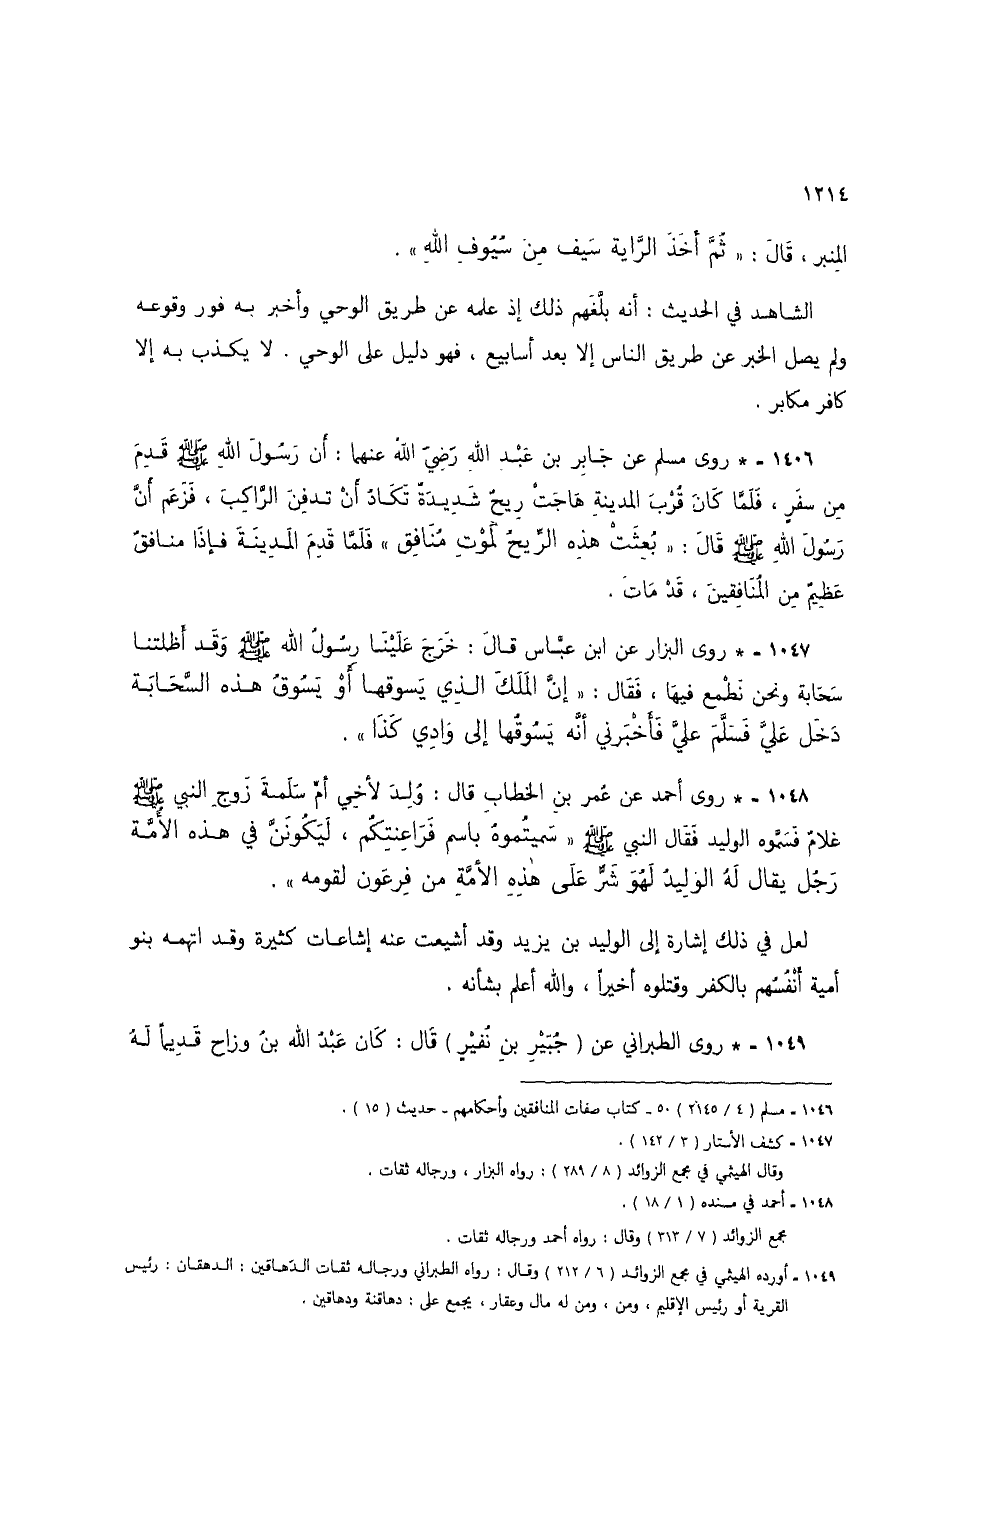 ١٢١٤
المنبر ، قَالَ : « ثُمَّ أَخَذَ الرَّاية سَيف مِنَ سُيُوفِ اللهِ » .
الشاهد في الحديث : أنه بلَّغَهم ذلك إذ علمه عن طريق الوحي وأخبر به فور وقوعه
ولم يصل الخبر عن طريق الناس إلا بعد أسابيع ، فهو دليل على الوحي . لا يكذب به إلا
كافر مكابر .
١٤٠٦ - * روى مسلم عن جَابِر بن عَبْد اللهِ رَضِيَ اللهُ عنهما : أَن رَسُولَ اللهِ ﷺ قَدِمَ
مِن سفَرٍ ، فَلَمَّا كَانَ قُرْبَ المدينةِ هَاجَتْ رِيحٌ شَدِيدَةٌ تَكَادُ أَنْ تدفِنَ الرَّاكِبَ ، فَزَعَم أَنَّ
رَسُولَ اللهِ ﷺ قَالَ : « بُعِثَتْ هذِه الرِّيحُ لَمَوْتِ مُنَافِقٍ » فَلَمَّا قَدِمَ المَدِينَةَ فإذَا منافِقٌ
عَظِيمٌ مِن المُنَافِقينَ ، قَدْ مَاتَ .
١٠٤٧ - * روى البزار عن ابن عبَّاس قالَ : خَرَجَ عَلَيْنَا رسُولُ الله ﷺ وَقَد أَظلتنا
سَحَابة ونحن نَطْمع فيهَا ، فَقَال : « إنَّ المَلَكَ الذي يَسوقها أَوْ يَسُوقُ هذه السَّحَابَة
دَخَل عَليَّ فَسَلَّمَ عليَّ فَأَخْبَرني أنَّه يَسُوقُها إلى وَادِي كَذَا » .
١٠٤٨ - * روى أحمد عن عُمر بن الخطاب قال : وُلِدَ لأخِي أمّ سَلَمةَ زَوجِ النبي ﷺ
غلامٌ فَسَمَّوه الوليد فَقَال النبي ﷺ « سَميتُموهُ باسم فَرَاعِنتِكُم ، لَيَكُونَنَّ في هذه الأُمَّة
رَجُل يقال لَهُ الوَلِيدُ لَهُوَ شَرٌّ عَلَى هٰذِهِ الأُمَّةِ من فِرعَون لقومه » .
لعل في ذلك إشارة إلى الوليد بن يزيد وقد أشيعت عنه إشاعات كثيرة وقد اتهمه بنو
أمية أَنْفُسُهم بالكفر وقتلوه أخيراً ، والله أعلم بشأنه .
١٠٤٩ - * روى الطبراني عن ( جُبَيْرِ بنِ نُفيْرٍ ) قَال : كَان عَبْدُ الله بنُ وزاح قَديماً لَهُ
١٠٤٦ - مسلم ( ٤ / ٢١٤٥ ) ٥٠ - كتاب صفات المنافقين وأحكامهم - حديث ( ١٥ ) .
١٠٤٧ - كشف الأستار ( ٣ / ١٤٢ ) .
وقال الهيثمي في مجمع الزوائد ( ٨ / ٢٨٩ ) : رواه البزار ، ورجاله ثقات .
١٠٤٨ - أحمد في مسنده ( ١ / ١٨ ) .
مجمع الزوائد ( ٧ / ٣١٣ ) وقال : رواه أحمد ورجاله ثقات .
١٠٤٩ - أورده الهيثمي في مجمع الزوائد ( ٦ / ٢١٢ ) وقال : رواه الطبراني ورجاله ثقات الدَهاقين : الدهقان : رئيس
القرية أو رئيس الإقليم ، ومن ، ومن له مال وعقار ، يجمع على : دهاقنة ودهاقين .